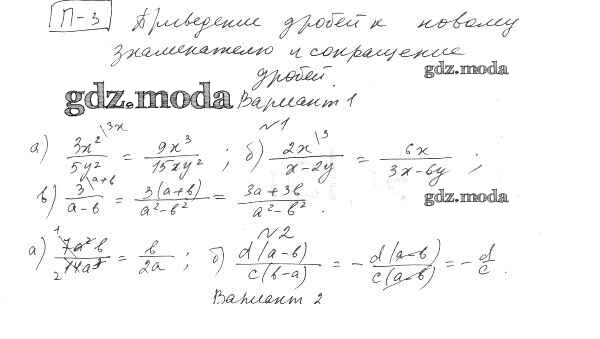 П-3 Приведение дробей к новому
знаменателю и сокращение
дробей.
gdz.moda
gdz.moda Вариант 1
№1
а) 3x²\3x / 5y² = 9x³ / 15xy² ; б) 2x\3 / x-2y = 6x / 3x-6y ;
в) 3\a+b / a-b = 3(a+b) / a²-b² = 3a+3b / a²-b² .
gdz.moda
№2
а) 7a²b / 14a³ = b / 2a ; б) d(a-b) / c(b-a) = - d(a-b) / c(a-b) = - d / c .
Вариант 2